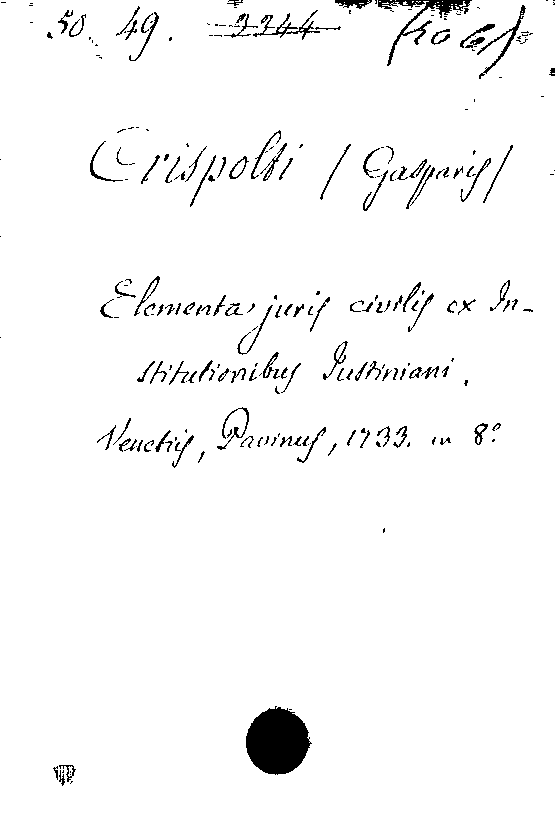 50. 49. 3344
Crispolti / Gasparis /
Elementa juris civilis ex In-
stitutionibus Justiniani.
Venetiis, Pavinus, 1733. in 8º